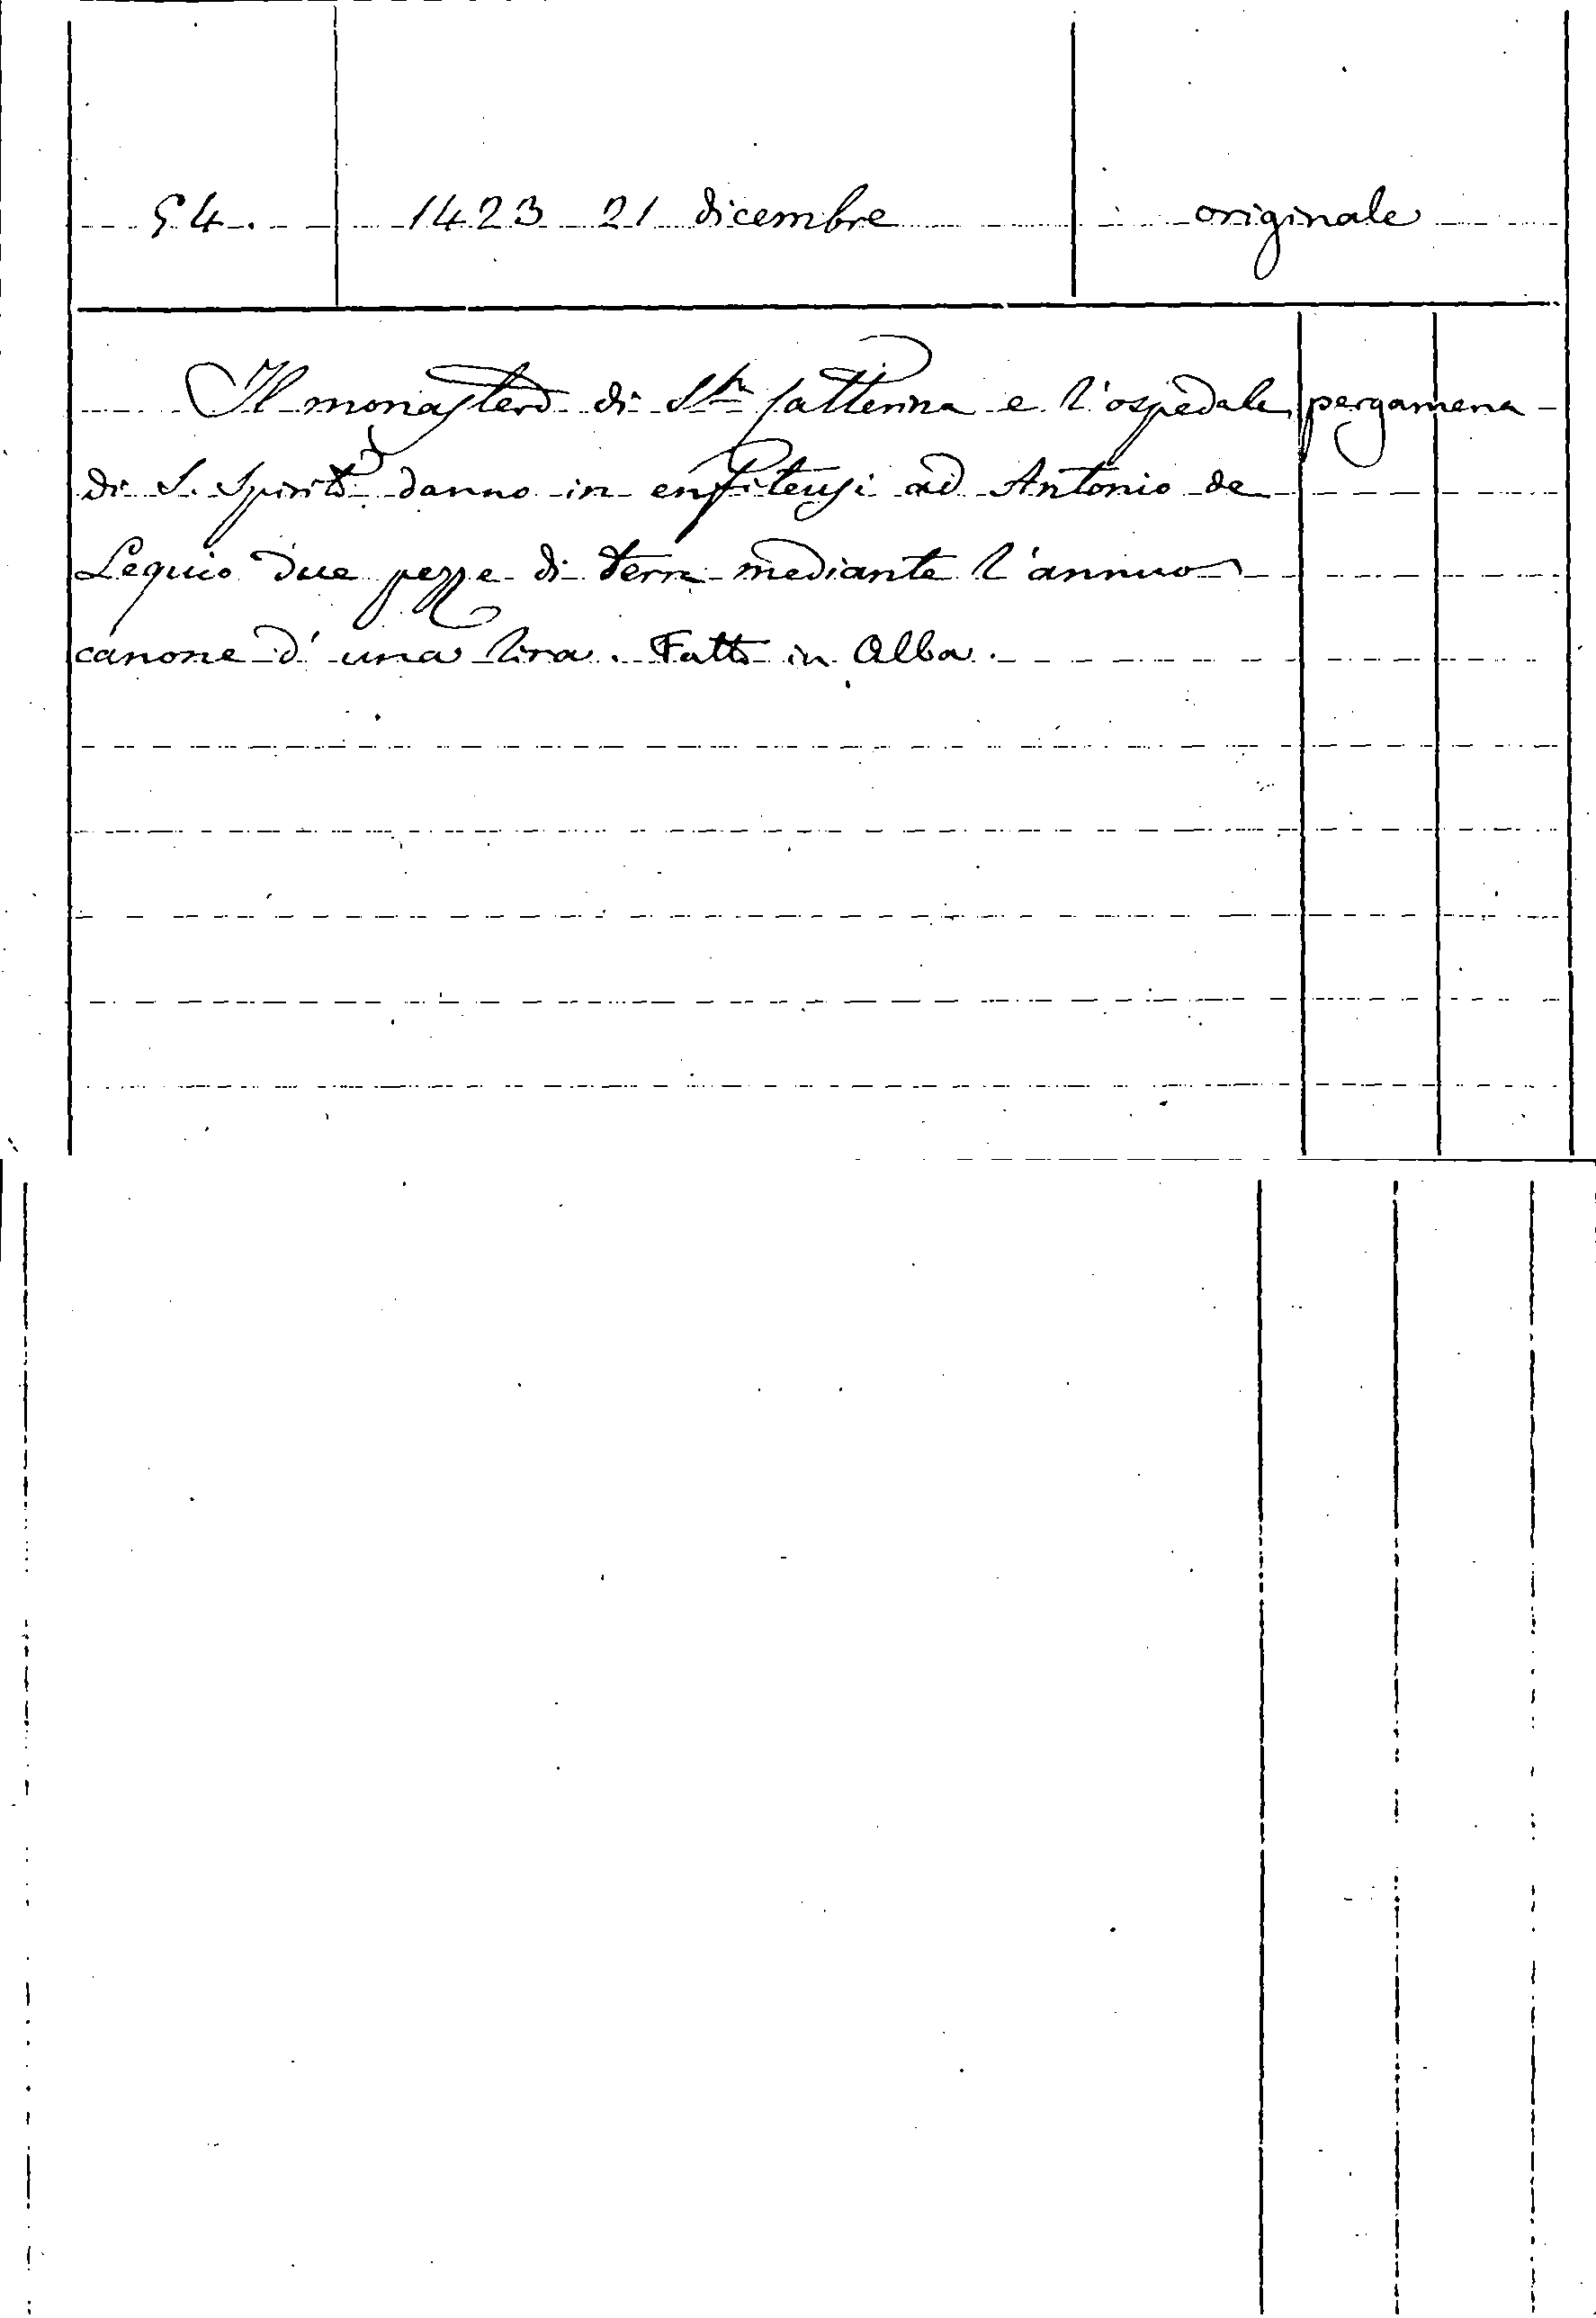 54. 1423 21 dicembre originale
Il monastero di Sta Catterina e l'ospedale pergamena
di S. Spirito danno in enfiteusi ad Antonio de
Lequio due pezze di terra mediante l'annuo
canone d'una lira. Fatto in Alba.